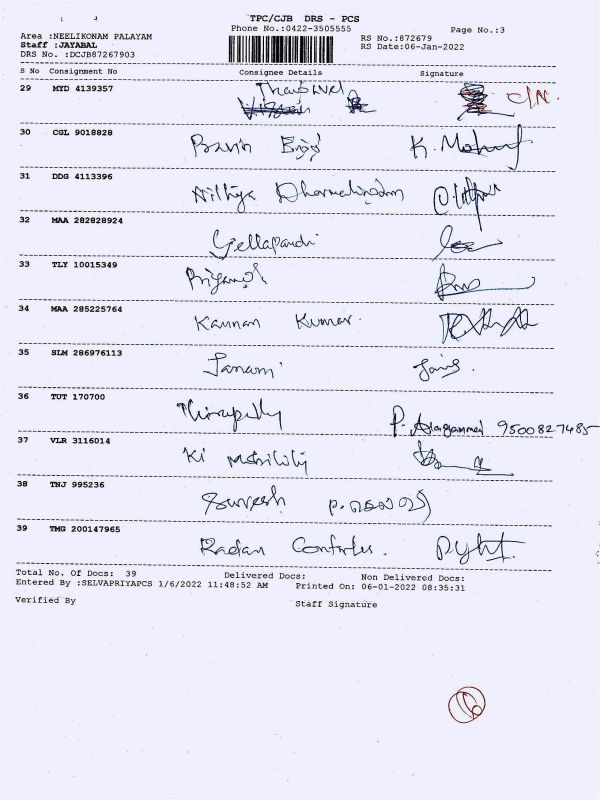 TPC/CJB DRS - PCS
Phone No.:0422-3505555 Page No.:3
Area :NEELIKONAM PALAYAM RS No.:872679
Staff :JAYABAL RS Date:06-Jan-2022
DRS No. :DCJB87267903
S No Consignment No Consignee Details Signature
29 MYD 4139357
30 CGL 9018828 K. Mohan
31 DDG 4113396 Nithya
32 MAA 282828924 Yellapandi
33 TLY 10015349
34 MAA 285225764 Kannan Kumar
35 SLM 286976113 Janani
36 TUT 170700 P. Alagammai 9500827485
37 VLR 3116014 Ki
38 TNJ 995236 Suresh
39 TMG 200147965 Radan
Total No. Of Docs: 39 Delivered Docs: Non Delivered Docs:
Entered By :SELVAPRIYAPCS 1/6/2022 11:48:52 AM Printed On: 06-01-2022 08:35:31
Verified By Staff Signature